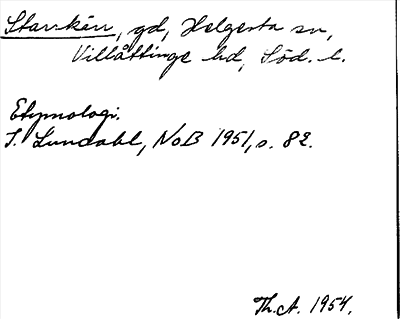 Starrkärr, gd, Helgesta sn,
Villåttinge hd, Söd. l.
Etymologi.
I. Lundahl, NoB 1951, s. 82.
Th. A. 1954.